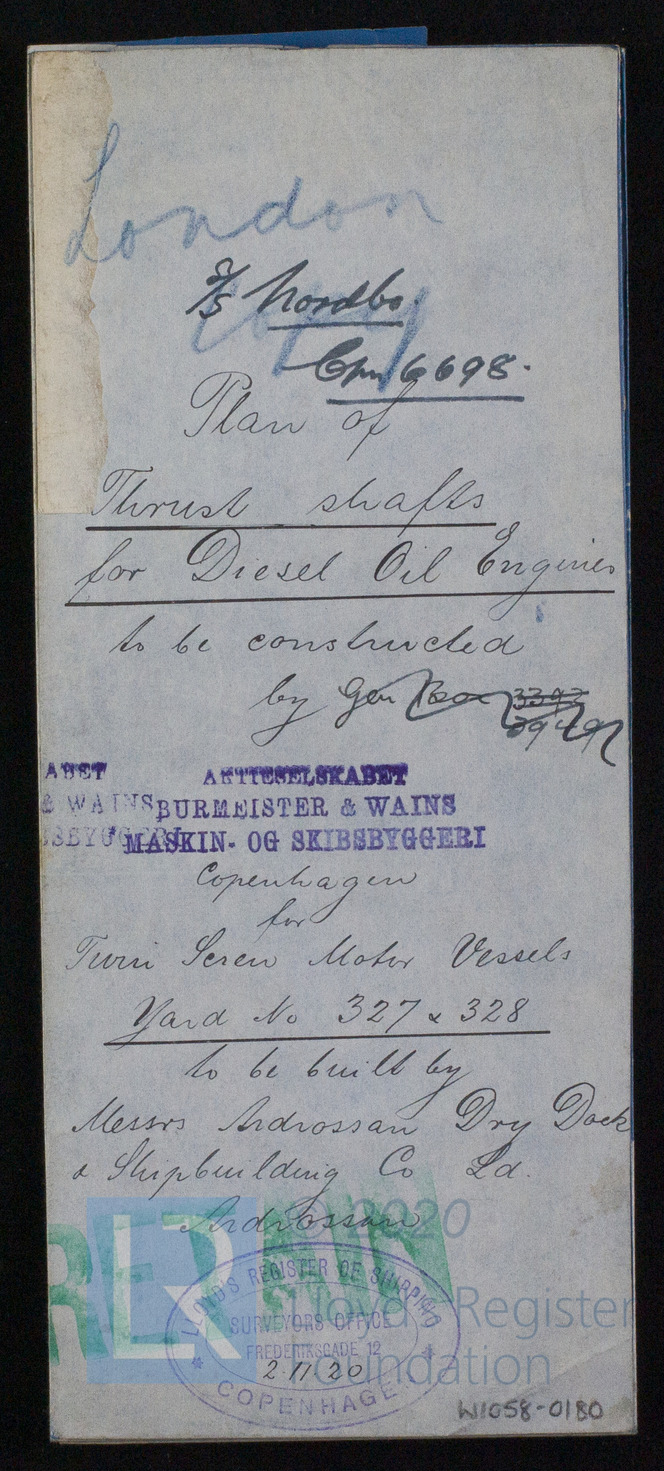 London
S/S Nordbo.
Copy
Cpn 6698.
Plan of
Thrust shafts
for Diesel Oil Engines
to be constructed
by Gen 3393
ABET AKTIESELSKABET
& WAINS BURMEISTER & WAINS
SSBYGGERI MASKIN- OG SKIBSBYGGERI
Copenhagen
for
Twin Screw Motor Vessels
Yard No 327 & 328
to be built by
Messrs Ardrossan Dry Dock
& Shipbuilding Co Ld.
Ardrossan
© 2020
LR
Lloyd's Register
Foundation
LLOYD'S REGISTER OF SHIPPING
SURVEYORS OFFICE
FREDERIKSGADE 12
2·11·20
COPENHAGEN
W1058-0180